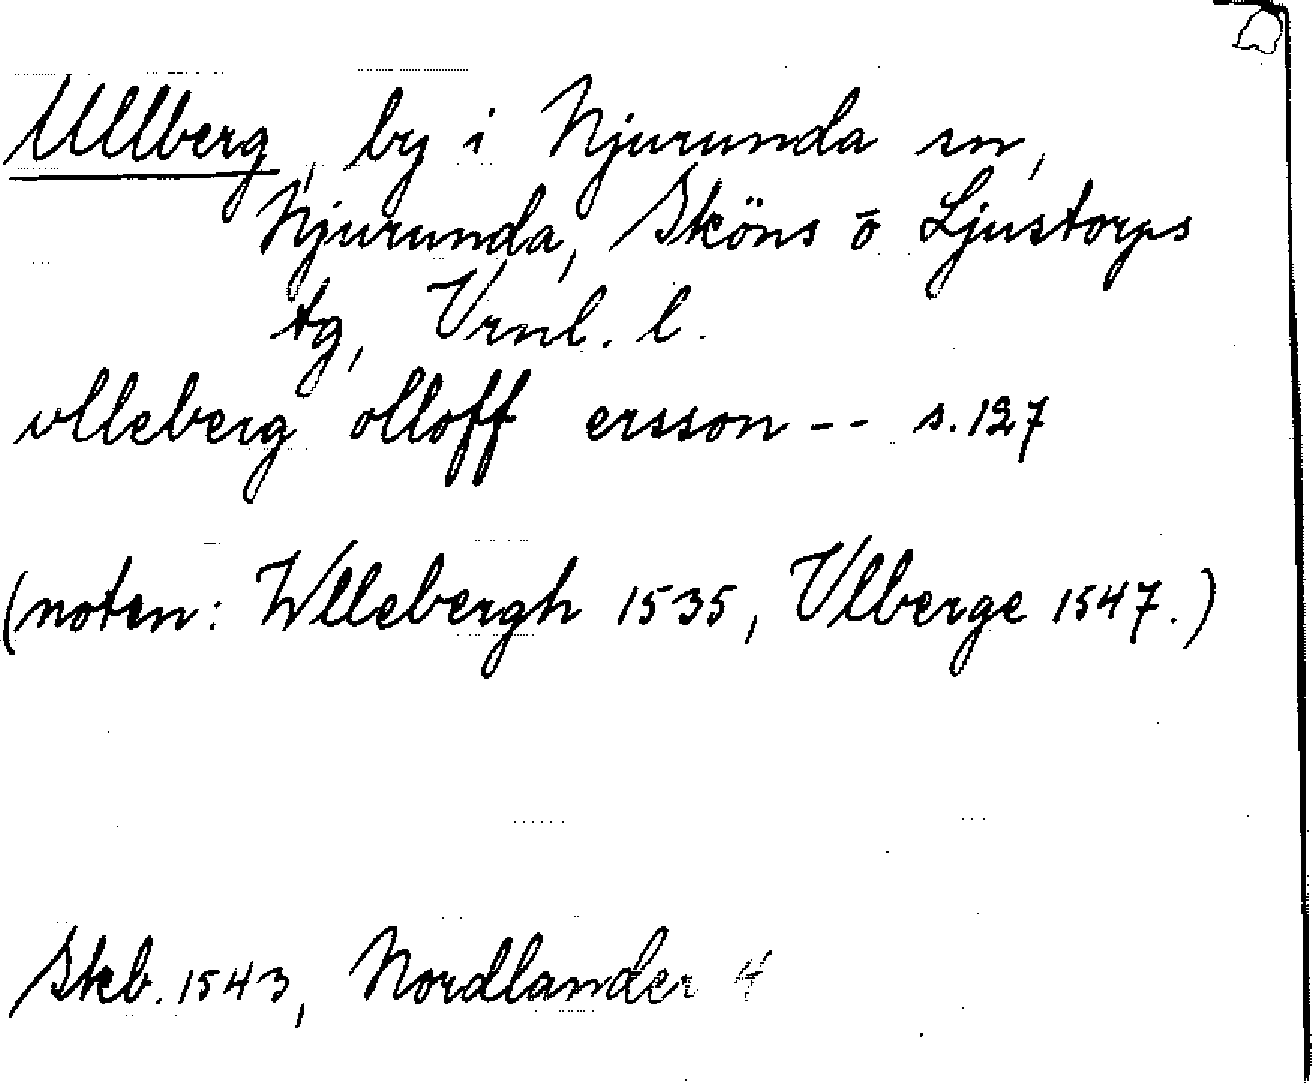 Ullberg, by i Njurunda sn,
Njurunda, Sköns o Ljustorps
tg, Vrnl. l.
vlleberg olloff ersson -- s.127
(noten: Wllebergh 1535, Vlberge 1547.)
Skb. 1543, Nordlander 4